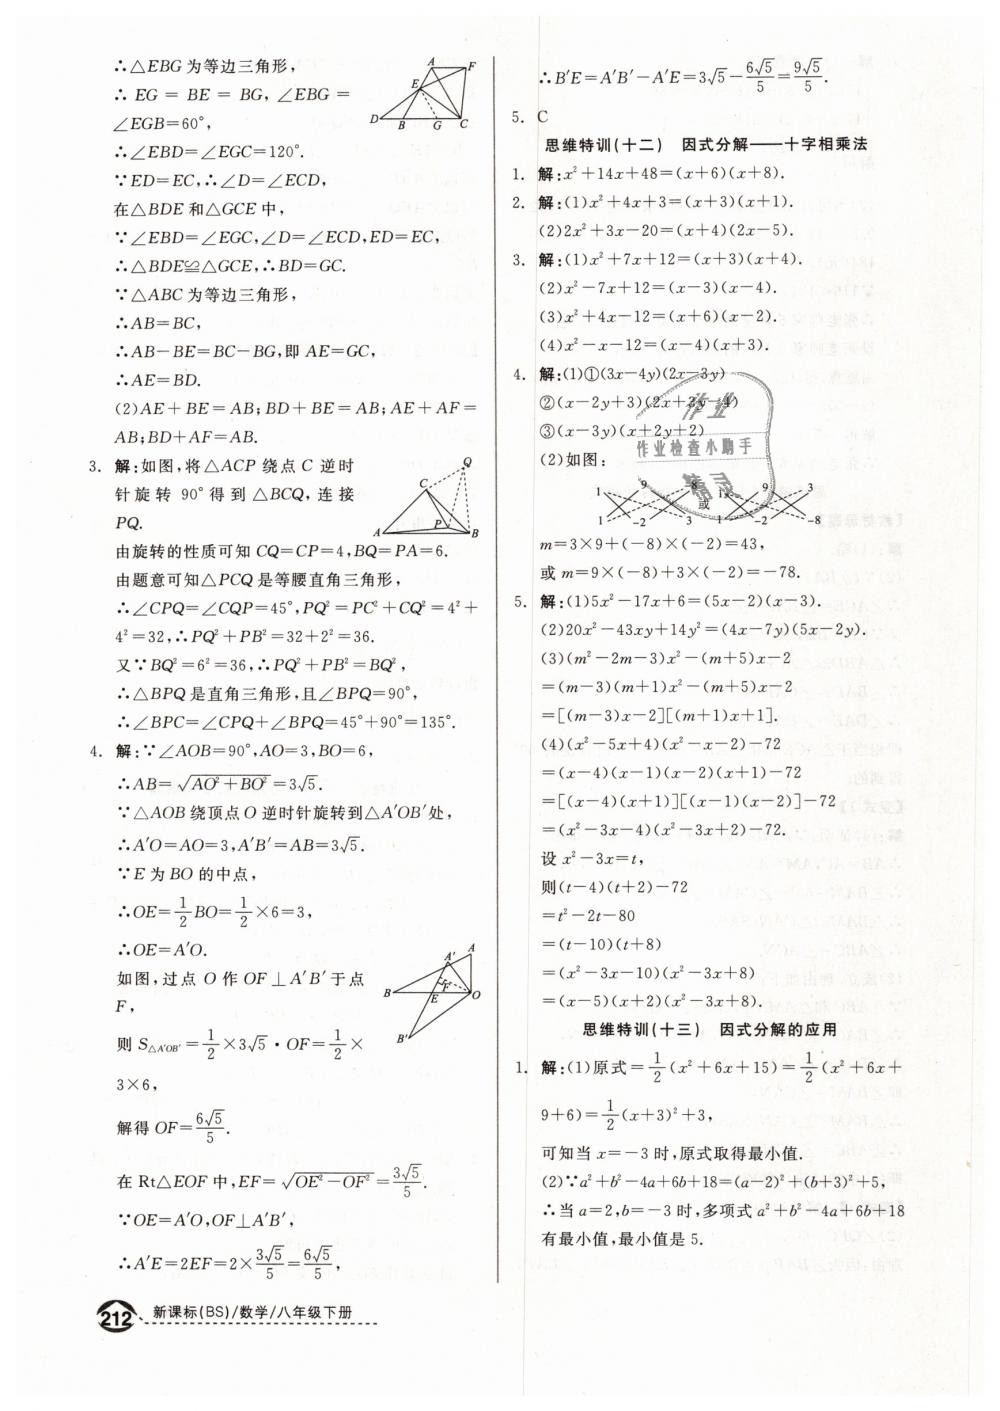 ∴△EBG为等边三角形，
∴ EG = BE = BG, ∠EBG =
∠EGB=60°,
∴∠EBD=∠EGC=120°.
∵ED=EC,∴∠D=∠ECD,
在△BDE和△GCE中，
∵∠EBD=∠EGC,∠D=∠ECD,ED=EC,
∴△BDE≌△GCE,∴BD=GC.
∵△ABC为等边三角形，
∴AB=BC,
∴AB-BE=BC-BG,即AE=GC,
∴AE=BD.
(2)AE+BE=AB;BD+BE=AB;AE+AF=
AB;BD+AF=AB.
A F E D B G C
3. 解:如图,将△ACP绕点C逆时
针旋转90°得到△BCQ,连接
PQ.
Q C P A B
由旋转的性质可知CQ=CP=4,BQ=PA=6.
由题意可知△PCQ是等腰直角三角形，
∴∠CPQ=∠CQP=45°,PQ²=PC²+CQ²=4²+
4²=32,∴PQ²+PB²=32+2²=36.
又∵BQ²=6²=36,∴PQ²+PB²=BQ²,
∴△BPQ是直角三角形,且∠BPQ=90°,
∴∠BPC=∠CPQ+∠BPQ=45°+90°=135°.
4. 解:∵∠AOB=90°,AO=3,BO=6,
∴AB=√(AO²+BO²)=3√5.
∵△AOB绕顶点O逆时针旋转到△A′OB′处，
∴A′O=AO=3,A′B′=AB=3√5.
∵E为BO的中点，
∴OE=1/2 BO=1/2×6=3,
∴OE=A′O.
如图,过点O作OF⊥A′B′于点
F,
A′ A F B E O B′
则S△A′OB′=1/2×3√5·OF=1/2×
3×6,
解得OF=6√5/5.
在Rt△EOF中,EF=√(OE²-OF²)=3√5/5.
∵OE=A′O,OF⊥A′B′,
∴A′E=2EF=2×3√5/5=6√5/5,
∴B′E=A′B′-A′E=3√5-6√5/5=9√5/5.
5. C
思维特训(十二) 因式分解——十字相乘法
1. 解:x²+14x+48=(x+6)(x+8).
2. 解:(1)x²+4x+3=(x+3)(x+1).
(2)2x²+3x-20=(x+4)(2x-5).
3. 解:(1)x²+7x+12=(x+3)(x+4).
(2)x²-7x+12=(x-3)(x-4).
(3)x²+4x-12=(x+6)(x-2).
(4)x²-x-12=(x-4)(x+3).
4. 解:(1)①(3x-4y)(2x-3y)
②(x-2y+3)(2x+3y-4)
③(x-3y)(x+2y+2)
作业
作业检查小助手
(2)如图:
1 9 -8 1 9 3
或
1 -2 3 1 -2 -8
m=3×9+(-8)×(-2)=43,
或m=9×(-8)+3×(-2)=-78.
5. 解:(1)5x²-17x+6=(5x-2)(x-3).
(2)20x²-43xy+14y²=(4x-7y)(5x-2y).
(3)(m²-2m-3)x²-(m+5)x-2
=(m-3)(m+1)x²-(m+5)x-2
=[(m-3)x-2][(m+1)x+1].
(4)(x²-5x+4)(x²-x-2)-72
=(x-4)(x-1)(x-2)(x+1)-72
=[(x-4)(x+1)][(x-1)(x-2)]-72
=(x²-3x-4)(x²-3x+2)-72.
设x²-3x=t,
则(t-4)(t+2)-72
=t²-2t-80
=(t-10)(t+8)
=(x²-3x-10)(x²-3x+8)
=(x-5)(x+2)(x²-3x+8).
思维特训(十三) 因式分解的应用
1. 解:(1)原式=1/2(x²+6x+15)=1/2(x²+6x+
9+6)=1/2(x+3)²+3,
可知当x=-3时,原式取得最小值.
(2)∵a²+b²-4a+6b+18=(a-2)²+(b+3)²+5,
∴当a=2,b=-3时,多项式a²+b²-4a+6b+18
有最小值,最小值是5.
212 新课标(BS)/数学/八年级下册